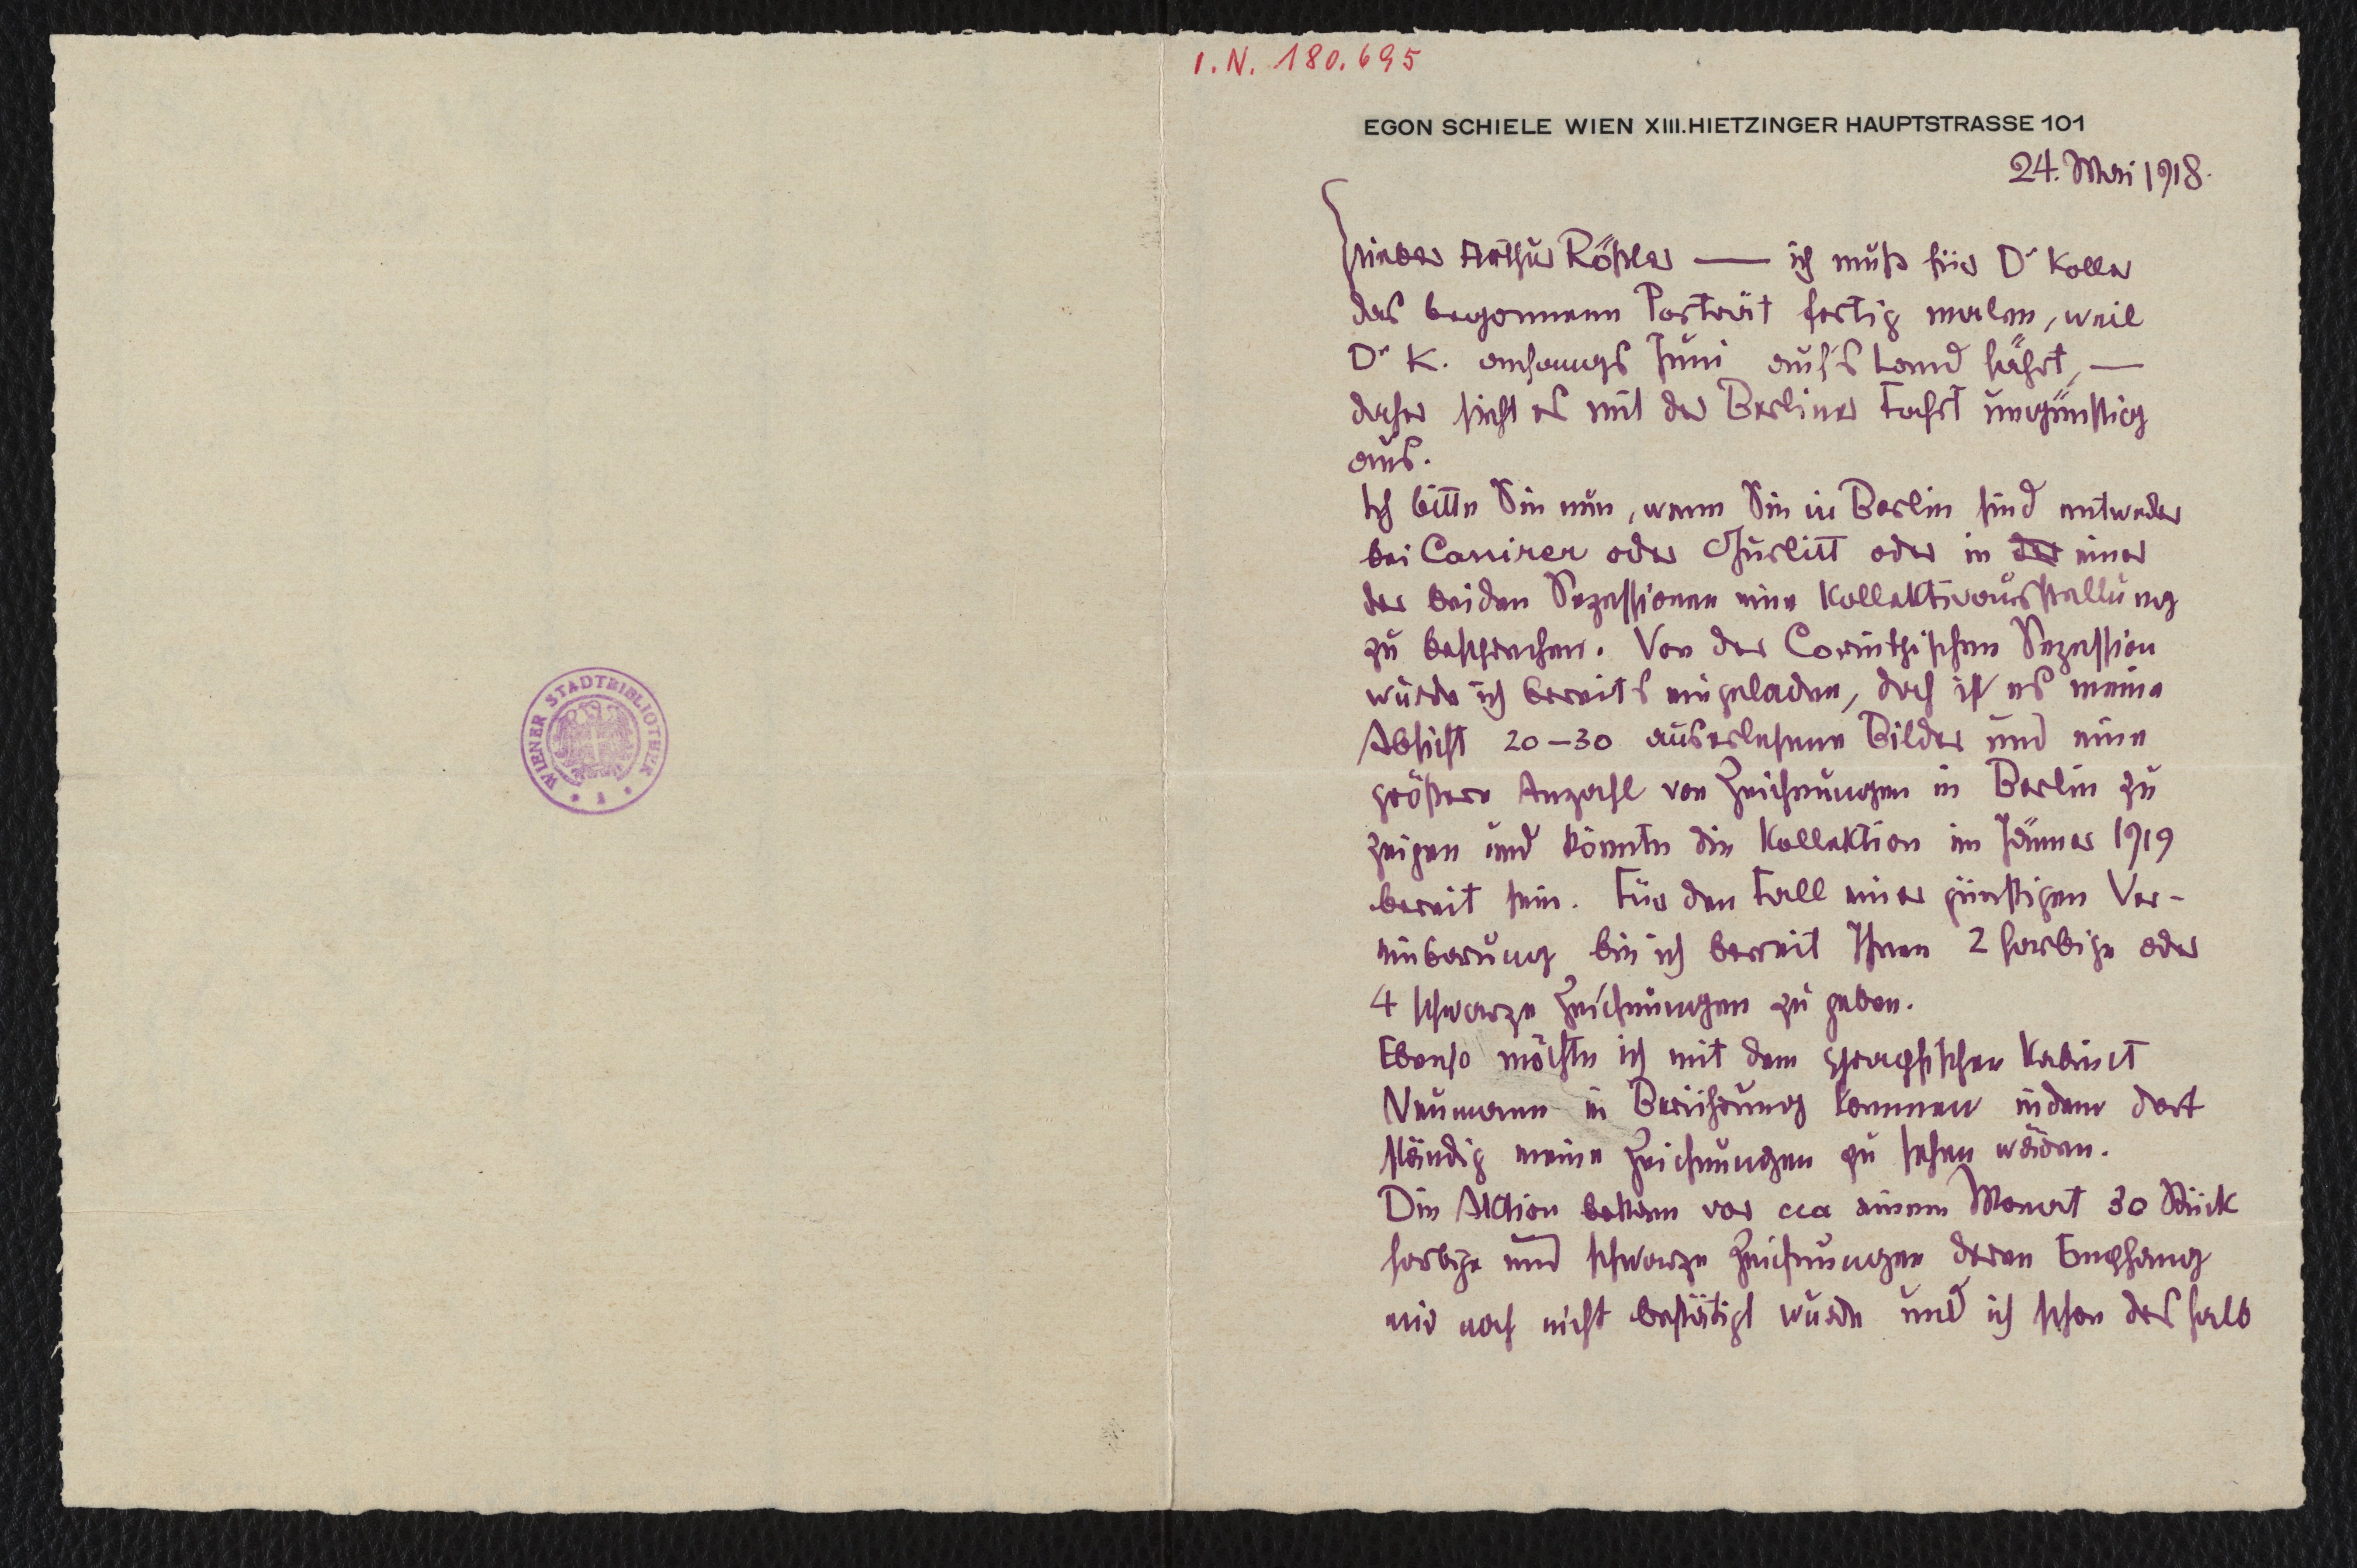 I.N. 180.695
EGON SCHIELE WIEN XIII. HIETZINGER HAUPTSTRASSE 101
24. Mai 1918.
Lieber Arthur Rößler — ich muß für Dr Koller
das begonnene Porträt fertig malen, weil
Dr K. anfangs Juni auf's Land fährt, —
daher sieht es mit der Berliner Fahrt ungünstig
aus.
Ich bitte Sie nun, wenn Sie in Berlin sind entweder
bei Cassirer oder Gurlitt oder in der einer
der beiden Sezessionen eine Kollektivausstellung
zu besprechen. Von der Corinthischen Sezession
wurde ich bereits eingeladen, doch ist es meine
Absicht 20–30 auserlesene Bilder und eine
größere Anzahl von Zeichnungen in Berlin zu
zeigen und könnte die Kollektion im Jänner 1919
bereit sein. Für den Fall einer günstigen Ver-
einbarung bin ich bereit Ihnen 2 farbige oder
4 schwarze Zeichnungen zu geben.
Ebenso möchte ich mit dem graphischen Kabinet
Neumann in Berührung kommen indem dort
ständig meine Zeichnungen zu sehen wären.
Die Aktion bekam vor cca einem Monat 30 Stück
farbige und schwarze Zeichnungen deren Empfang
mir noch nicht bestätigt wurde und ich schon deshalb
WIENER STADTBIBLIOTHEK